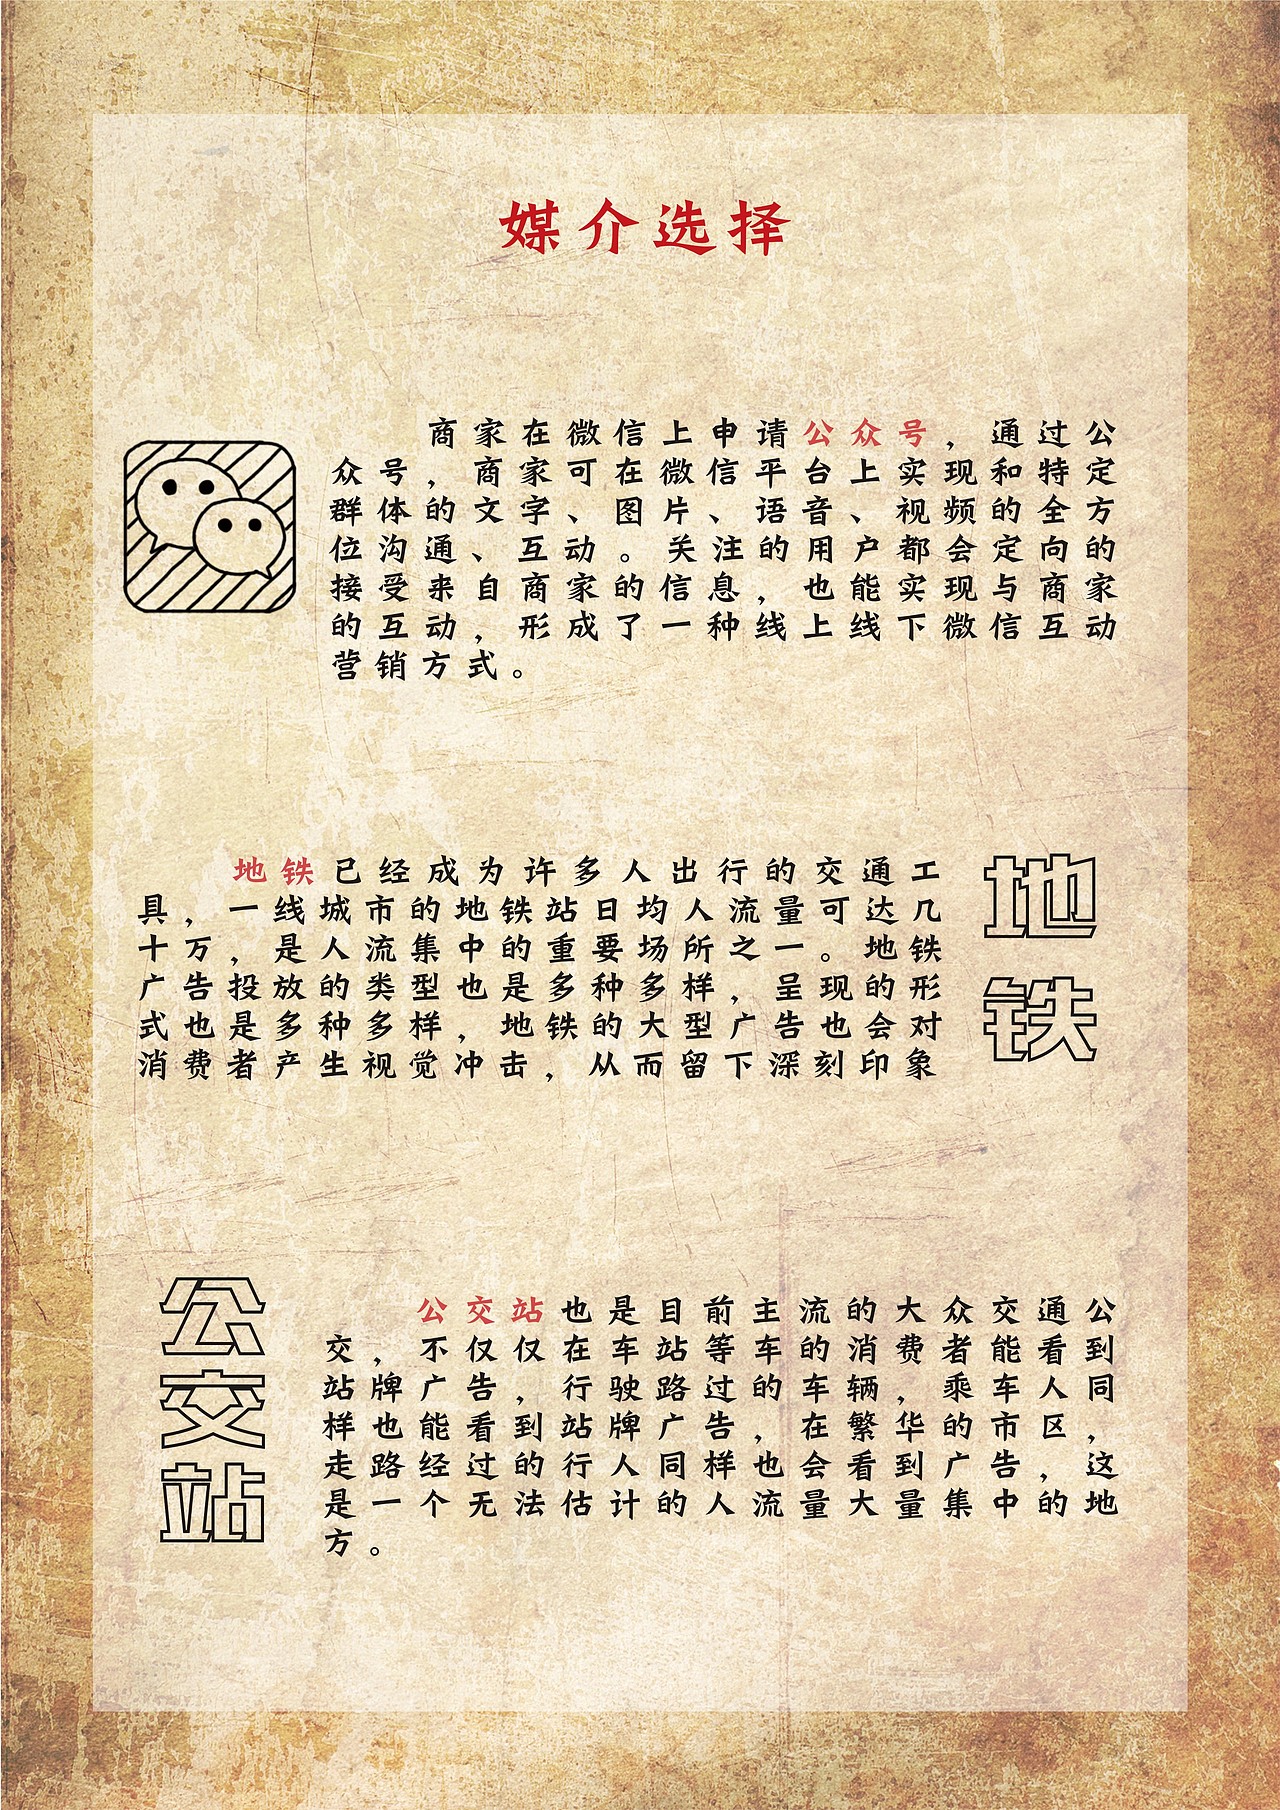 媒介选择
商家在微信上申请公众号，通过公
众号，商家可在微信平台上实现和特定
群体的文字、图片、语音、视频的全方
位沟通、互动。关注的用户都会定向的
接受来自商家的信息，也能实现与商家
的互动，形成了一种线上线下微信互动
营销方式。
地铁已经成为许多人出行的交通工
具，一线城市的地铁站日均人流量可达几
十万，是人流集中的重要场所之一。地铁
广告投放的类型也是多种多样，呈现的形
式也是多种多样，地铁的大型广告也会对
消费者产生视觉冲击，从而留下深刻印象
地
铁
公
交
站
公交站也是目前主流的大众交通公
交，不仅仅在车站等车的消费者能看到
站牌广告，行驶路过的车辆，乘车人同
样也能看到站牌广告，在繁华的市区，
走路经过的行人同样也会看到广告，这
是一个无法估计的人流量大量集中的地
方。